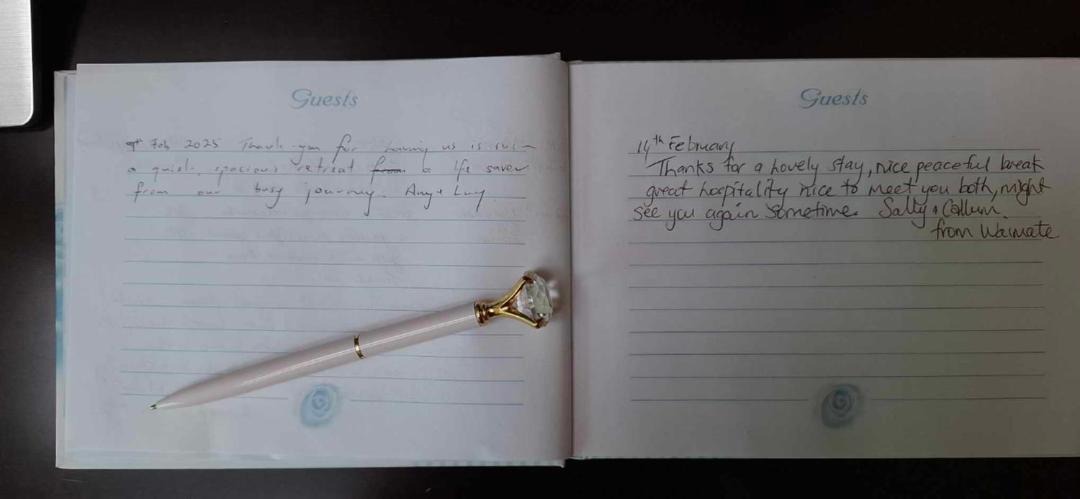 Guests
Feb 2025 Thank-you for having us is such
a quiet, spacious retreat from a life saver
from our busy journey. Amy + Lucy
Guests
14th February
Thanks for a lovely stay, nice peaceful break
great hospitality nice to meet you both, might
see you again sometime. Sally + Callum.
from Waimate